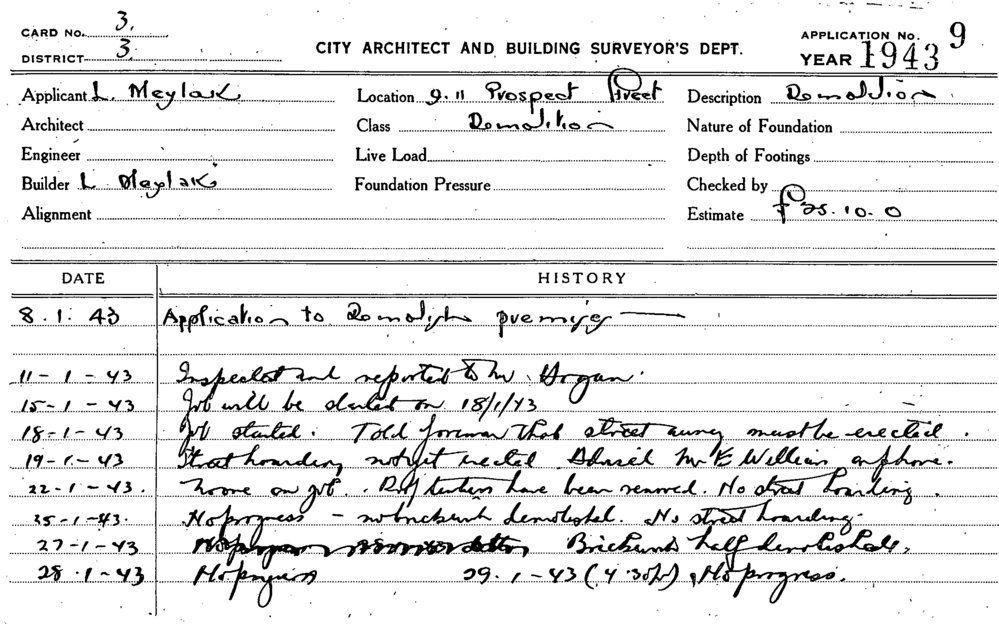 CARD NO. 3.
DISTRICT 3.
CITY ARCHITECT AND BUILDING SURVEYOR'S DEPT.
APPLICATION NO. 9
YEAR 1943
Applicant L. Meylak Location 9.11 Prospect Street Description Demolition
Architect Class Demolition Nature of Foundation
Engineer Live Load Depth of Footings
Builder L Meylak Foundation Pressure Checked by
Alignment Estimate £25.10.0
DATE HISTORY
8.1.43 Application to Demolish premises
11-1-43 Inspected and reported to Mr. Hogan.
15-1-43 Job will be started on 18/1/43
18-1-43 Job started. Told foreman that street must be erected.
19-1-43 Street hoarding not yet erected Mr E William on phone.
22-1-43. No one on job. Roof timbers have been removed. No street hoarding.
25-1-43. No progress - no brickwork demolished. No street hoarding.
27-1-43 Brickwork half demolished.
28.1-43 No progress 29.1-43 (4.30), No progress.